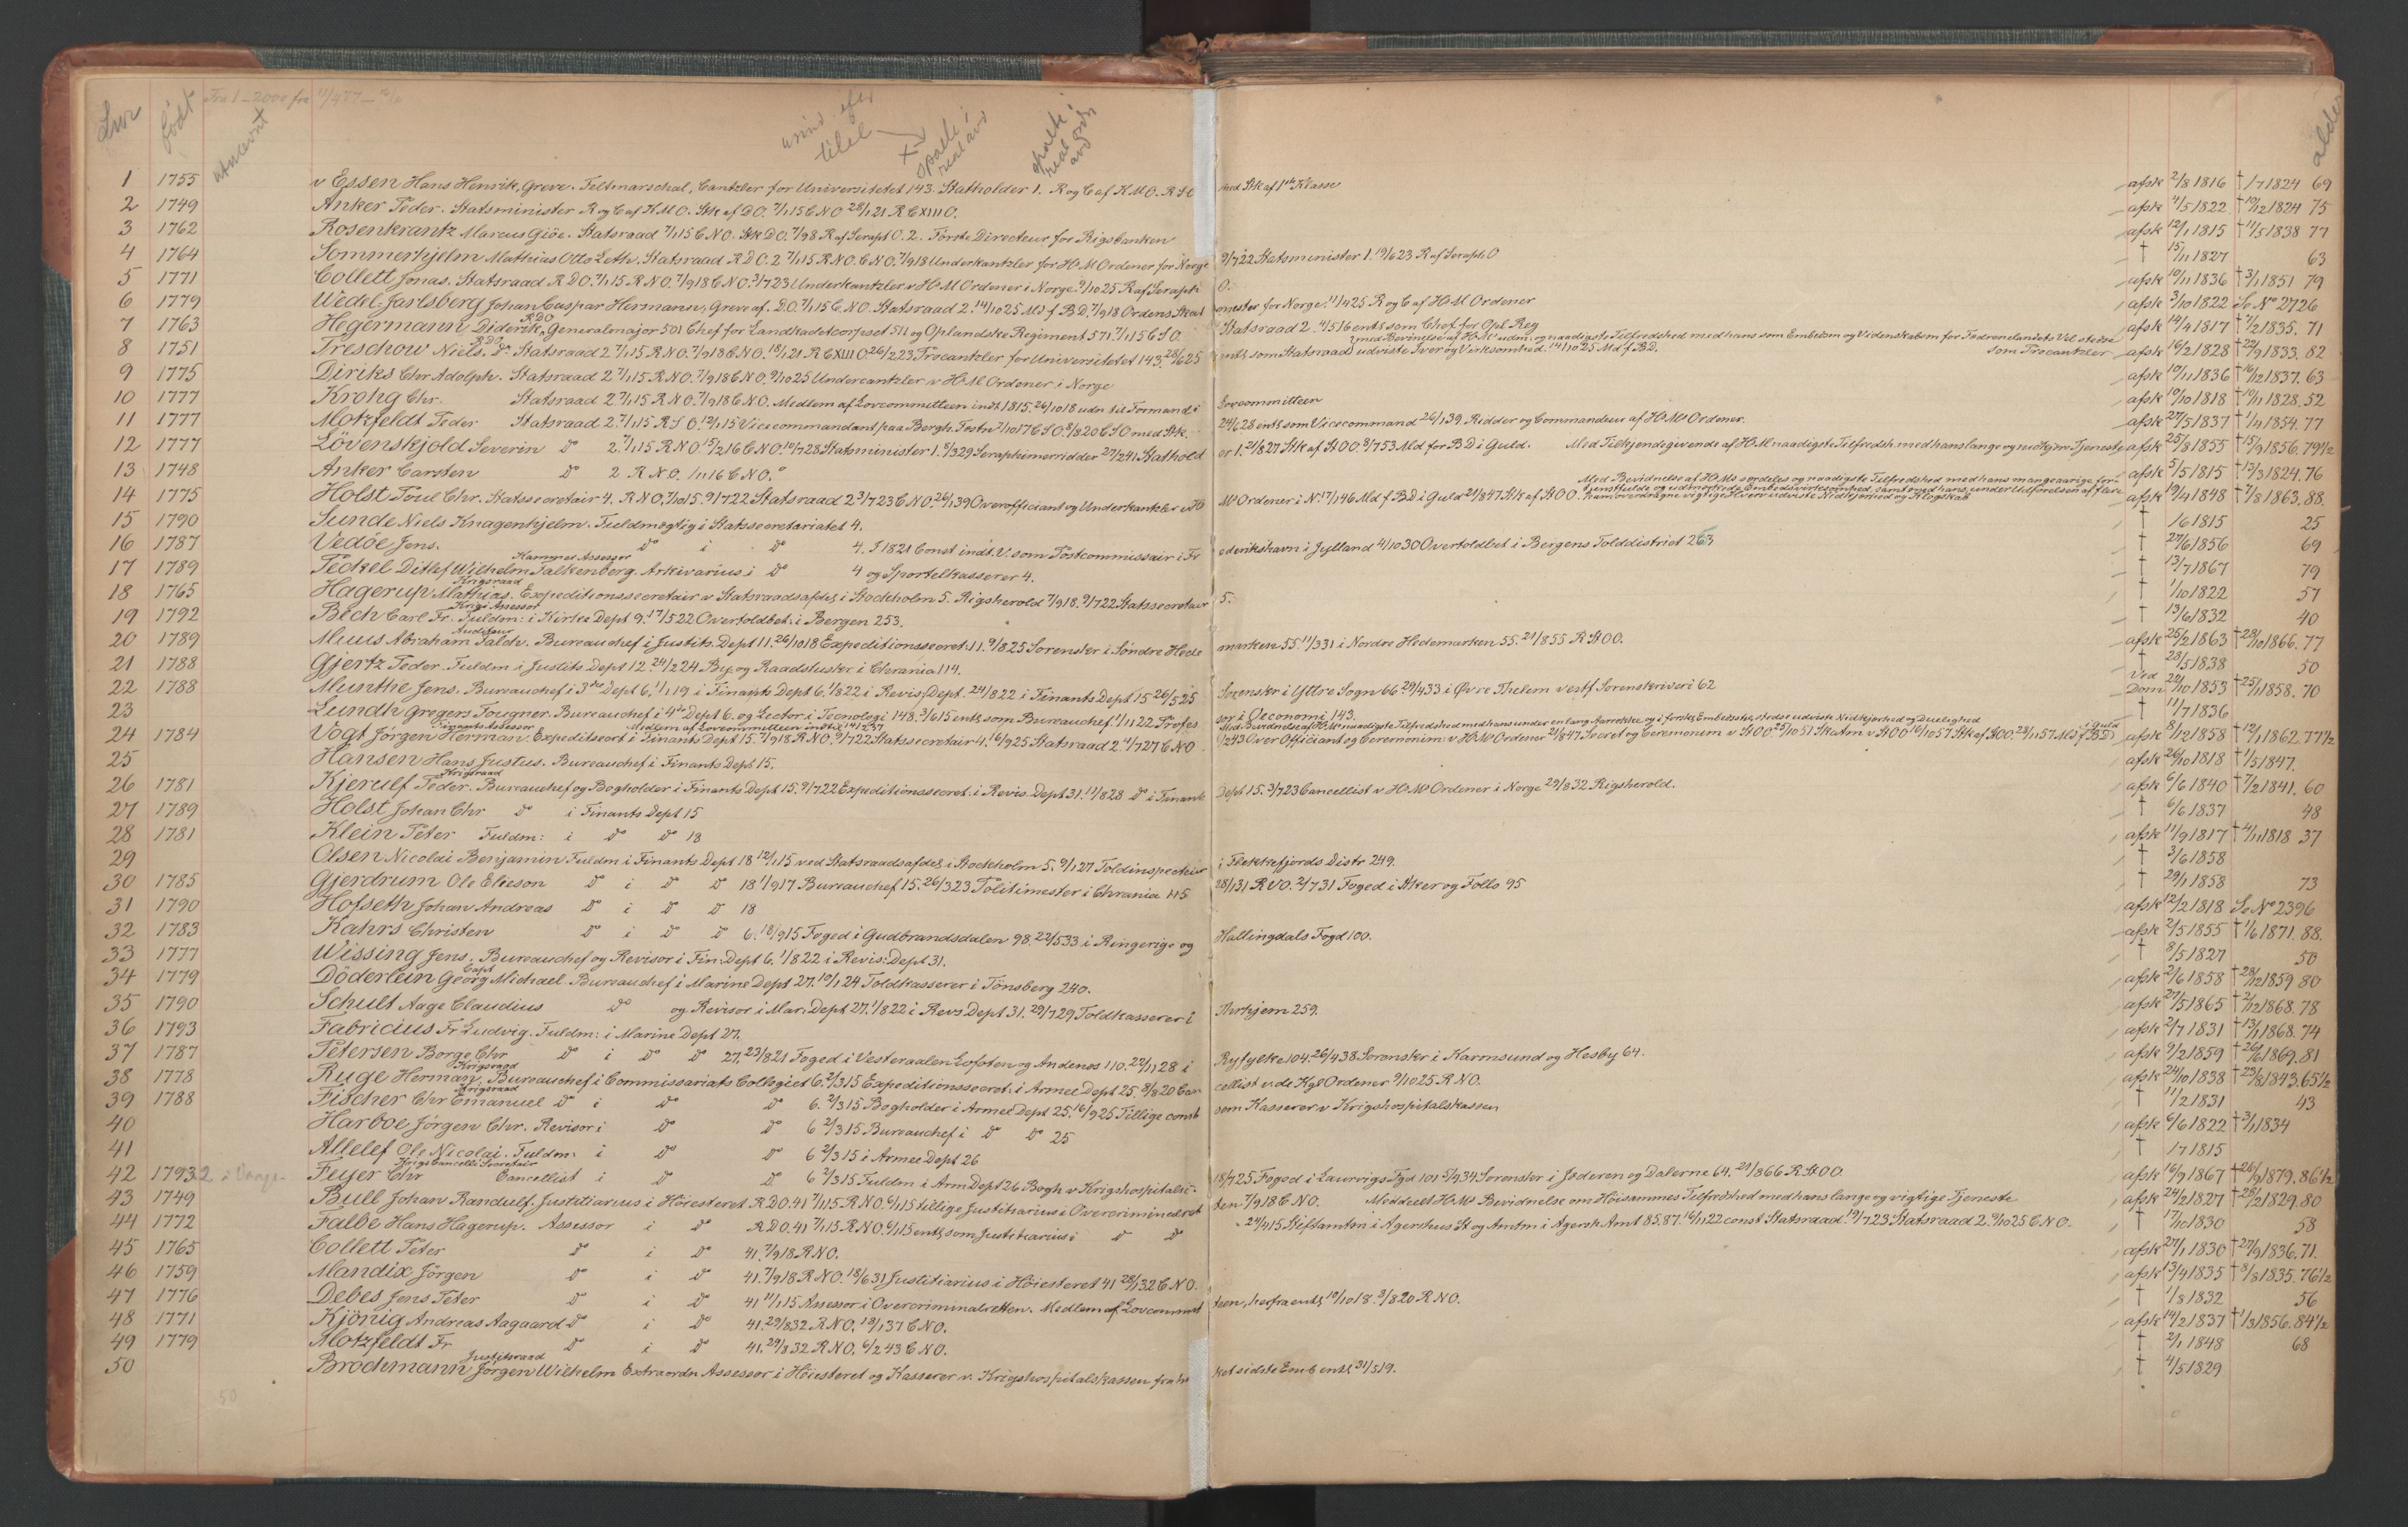 Lnr født Fra 1–2000 fra alder
1 1755 v Essen Hans Henrik, Greve. Feltmarschal, Cantzler for Universitetet 143. Statholder 1. R og C af K M O. R S O med Stk af 1ste Klasse afsk 2/8 1816 † 1/7 1824 69
2 1749 Anker Peder. Statsminister R og C af K M O. Stk af D O. 7/1 15 C N O 28/1 21 R C XIII O. afsk 4/5 1822 † 10/12 1824 75
3 1762 Rosenkrantz Marcus Giöe. Statsraad 7/1 15 C N O. Stk D O. 7/9 8 R af Seraph O. 2. Förste Directeur for Rigsbanken afsk 12/1 1815 † 11/5 1838 77
4 1764 Sommerhjelm Mathias Otto Leth. Statsraad R D O. 2 7/1 15 R N O. C N O. 7/9 18 Underkantzler for H M Ordener for Norge 9/7 22 Statsminister 1. 19/6 23 R af Seraph O † 15/11 1827 63
5 1771 Collett Jonas. Statsraad R D O. 7/1 15 R N O. 7/9 18 C N O. 3/7 23 Underkantzler v H M Ordener i Norge. 9/10 25 R af Seraph O. afsk 10/11 1836 † 3/1 1851 79
6 1779 Wedel Jarlsberg Johan Caspar Hermann, Greve af. D O. 7/1 15 C N O. Statsraad 2. 14/10 25 Md f B D. 7/9 18 Ordens Skatmester for Norge. 11/4 25 R og C af H M Ordener afsk 3/10 1822 Se No 2726
7 1763 Hegermann Diderik, R D O Generalmajor 501 Chef for Landkadetcorpset 511 og Oplandske Regiment 571. 7/1 15 C S O. Statsraad 2. 4/5 16 entl som Chef for Opl Reg afsk 14/4 1817 † 7/2 1835. 71
8 1751 Treschow Niels. R D O do Statsraad 2 7/1 15 R N O. 7/9 18 C N O. 18/1 21 R C XIII O 26/2 23 Procantzler for Universitetet 143. 28/6 25 entl som Statsraad med Bevidnelse af H M's udm. og naadigste Tilfredshed med hans som Embedsm og Videnskabsm for Fædrenelandets Vel stedse udviste Iver og Virksomhed. 14/10 25 Md f B D. som Procantzler afsk 16/2 1828 † 22/9 1833. 82
9 1775 Diriks Chr Adolph. Statsraad 2 7/1 15 R N O. 7/9 18 C N O. 9/10 25 Undercantzler v H M Ordener i Norge afsk 10/11 1836 † 16/12 1837. 63
10 1777 Krohg Chr. Statsraad 2 7/1 15 R N O. 7/9 18 C N O. Medlem af Lovcommitteen indt 1815. 26/10 18 udn til Formand i Lovcommitteen afsk 10/10 1818 † 10/11 1828. 52
11 1777 Motzfeldt Peder Statsraad 2. 7/1 15 R S O. 12/1 15 Vicecommandant paa Bergh. Festn 7/10 17 C S O. 8/8 20 C S O med Stk. 24/6 28 entl som Vicecommand 26/1 39. Ridder og Commandeur af H M's Ordener. afsk 27/5 1837 † 1/4 1854. 77
12 1777 Lövenskjold Severin do 2. 7/1 15 R N O 15/2 16 C N O. 10/7 28 Statsminister 1. 8/3 29 Seraphimerridder 27/2 41 Statholder 1. 21/8 27 Stk af St O O. 8/7 53 Md for B D i Guld. Med Tilkjendegivende af H M naadigste Tilfredsh. med hans lange og nidkjær Tjeneste afsk 25/8 1855 † 15/9 1856. 79½
13 1748 Anker Carsten do 2 R N O. 1/1 16 C N O. afsk 5/5 1815 † 13/3 1824. 76
14 1775 Holst Poul Chr. Statssecretair 4. R N O. 7/10 15. 9/7 22 Statsraad 2 3/7 23 C N O. 26/1 39 Overofficiant og Underkantzler v H M Ordener i N. 17/1 46 Md f B D i Guld 21/8 47 Stk af St O O. Med Bevidnelse af H M's særdeles og naadigste Tilfredshed med hans mangeaarige fortjenstfulde og udmærkede Embedsvirksomhed, samt med hans under Udførelsen af flere ham overdragne vigtige Hverv udviste Nidkjærhed og Klogskab afsk 19/4 1848 † 7/8 1863. 88.
15 1790 Sunde Niels Knagenhjelm. Fuldmægtig i Statssecretariatet 4. † 1/6 1815 25
16 1787 Vedöe Jens. do i do 4. I 1821 Const indt. V. som Postcommissair i Frederikshavn i Jylland 4/10 30 Overtoldbet i Bergens Tolddistrict 263 † 27/6 1856 69
17 1789 Peckel Ditlef Wilhelm Falkenberg. Kammer Assessor Arkivarius i do 4 og Sportelkasserer 4. † 13/7 1867 79
18 1765 Hagerup Mathias. Krigsraad Expeditionssecretair v Statsraadsafdel i Stockholm 5. Rigsherold 7/9 18. 9/7 22 Statssecretair 5. † 1/10 1822 57
19 1792 Bech Carl Fr. Krigs Assessor Fuldm: i Kirke Dept 9. 17/5 22 Overtoldbet. i Bergen 253. † 13/6 1832 40
20 1789 Muus Abraham Falch. Auditeur Bureauchef i Justits. Dept 11. 26/10 18 Expeditionssecret. 11. 9/8 25 Sorenskr i Søndre Hedemarken 55. 11/3 31 i Nordre Hedemarken 55. 21/8 55 R St O O. afsk 25/2 1863 † 28/10 1866. 77
21 1788 Gjertz Peder. Fuldm i Justits Dept 12 24/2 24 By og Raadstuskr. i Chrania 114. † 28/5 1838 50
22 1788 Munthe Jens. Bureauchef i 3die Dept 6. 1/1 19 i Finants Dept 6. 1/8 22 i Revis. Dept. 24/8 22 i Finants Dept 15 26/5 25 Sorenskr i Yttre Sogn 66 29/4 33 i Øvre Thelem vestf Sorenskriveri 62 Ved Dom 20/10 1853 † 25/1 1858. 70
23 Lundh Gregers Fougner. Bureauchef i 4de Dept 6. og Lector i Tecnologi 148. 3/6 15 entl som Bureauchef. 1/11 22 Professor i Oeconomi 143. † 11/7 1836
24 1784 Vogt Jørgen Herman. Finants Assessor Medlem af Lovcommitteen indtil 14/1 27. Expeditsecrt i Finants Dept 15. 7/9 18 R N O. 9/7 22 Statssecretair 4. 16/9 25 Statsraad 2 4/7 27 C N O Med Bevidnelse af H M naadigste Tilfredshed med hans under en lang Aarrække og i forsk. Embedsstil. stedse udviste Nidkjærhed og Duelighed 1/2 43 Over Officiant og Ceremonim: v H M Ordener 21/8 47 Secret og Ceremonim v St O O 25/10 51 Skatm v St O O 16/10 57 Stk af St O O. 28/11 57 Md f B D i Guld afsk 8/12 1858 † 12/1 1862. 77½
25 Hansen Hans Justus. Bureauchef i Finants Dept 15. afsk 26/10 1818 † 1/5 1847.
26 1781 Kjerulf Peder. Krigsraad Bureauchef og Bogholder i Finants Dept 15. 9/7 22 Expeditionssecret. i Revis. Dept 31. 11/8 28 do i Finants Dept 15. 3/7 23 Cancellist v H M Ordener i Norge 29/8 32 Rigsherold. afsk 6/6 1840 † 7/2 1841. 60
27 1789 Holst Johan Chr do i Finants Dept 15 † 6/6 1837 48
28 1781 Klein Peter Fuldm: i do do 18 afsk 11/9 1817 † 4/11 1818 37
29 Olsen Nicolai Benjamin Fuldm i Finants Dept 18 12/1 15 ved Statsraadsafdel i Stockholm 5. 9/1 27 Toldinspecteur i Flekkefjords Distr 249. † 3/6 1858
30 1785 Gjerdrum Ole Elieson do i do do 18 1/9 17 Bureauchef 15. 26/3 23 Politimester i Chrania 115 28/1 31 R V O. 2/7 31 Foged i Aker og Follo 95 † 29/1 1858 73
31 1790 Hofseth Johan Andreas do i do do 18 afsk 12/2 1818 Se No 2396
32 1783 Kahrs Christen do i do do 6. 18/9 15 Foged i Gudbrandsdalen 98. 22/5 33 i Ringerige og Hallingdals Fogd 100. afsk 2/5 1855 † 1/6 1871. 88.
33 1777 Wissing Jens. Bureauchef og Revisor i Fin: Dept 6. 1/8 22 i Revis: Dept 31. † 8/5 1827 50
34 1779 Döderlein Georg Michael. Capt Bureauchef i Marine Dept 27. 10/1 24 Toldkasserer i Tönsberg 240. afsk 2/6 1858 † 28/12 1859 80
35 1790 Schult Aage Claudius do og Revisor i Mar. Dept 27. 1/8 22 i Revs Dept 31. 29/7 29 Toldkasserer i Thrhjem 259. afsk 27/5 1865 † 2/12 1868. 78
36 1793 Fabricius Fr Ludvig. Fuldm: i Marine Dept 27. afsk 2/7 1831 † 13/1 1868. 74
37 1787 Petersen Borge Chr do i do do 27. 23/8 21 Foged i Vesteraalen Lofoten og Andenes 110. 22/11 28 i Ryfylke 104. 26/4 38 Sorenskr i Karmsund og Hesby 64. afsk 9/2 1859 † 26/6 1869. 81
38 1778 Ruge Herman, Krigsraad Bureauchef i Commissariats Collegiet 6. 2/3 15 Expeditionssecret. i Armee Dept 25. 8/8 20 Cancellist v de Kgl Ordener 9/10 25 R N O. afsk 24/10 1838 † 23/8 1843. 65½
39 1788 Fischer Chr Emanuel Krigsraad do i do do 6. 2/3 15 Bogholder i Armee Dept 25. 16/9 25 Tillige const som Kasserer v Krigshospitalskassen † 11/2 1831 43
40 Harboe Jörgen Chr. Revisor i do do 6 2/3 15 Bureauchef i do do 25 afsk 6/6 1822 † 3/1 1834
41 Allelef Ole Nicolai. Fuldm: i do do 6 2/3 15 i Armee Dept 26 † 1/7 1815
42 1793 Feyer Chr Krigs Cancelli Secretair Cancellist i do do 6 2/3 15 Fuldm i Arm Dept 26 Bogh v Krigshospitalk. 18/7 25 Foged i Laurvigs Fgd 101 5/9 34 Sorenskr i Jæderen og Dalerne 64. 21/8 66 R St O O. afsk 16/9 1867 † 26/9 1879. 86½
43 1749 Bull Johan Randulf. Justitiarius i Höiesteret R D O. 41 7/1 15 R N O. 6/1 15 tillige Justitiarius i Overcriminalretten 7/9 18 C N O. Meddeelt H M's Bevidnelse om Höisammes Tilfredshed med hans lange og vigtige Tjeneste afsk 24/2 1827 † 28/2 1829. 80
44 1772 Falbe Hans Hagerup. Assessor i do R D O. 41 7/1 15 R N O. 6/1 15 entl som Justitiarius i do do 24/4 15 Stiftsamtm i Agershus St og Amtm i Agersh Amt 85. 87. 16/11 22 const Statsraad. 19/7 23 Statsraad 2. 9/10 25 C N O. † 17/10 1830 58
45 1765 Collett Peter do i do 41. 7/9 18 R N O. afsk 27/1 1830 † 27/9 1836. 71.
46 1759 Mandix Jörgen do i do 41. 7/9 18 R N O. 18/6 31 Justitiarius i Höiesteret 41 28/1 32 C N O. afsk 13/4 1835 † 8/8 1835. 76½
47 1776 Debes Jens Peter do i do 41 11/1 15 Assessor i Overcriminalretten. Medlem af Lovcommitteen, herfra entl 10/10 18. 3/8 20 R N O. † 1/8 1832 56
48 1771 Kjönig Andreas Aagaard do i do 41. 29/8 32 R N O. 18/1 37 C N O. afsk 14/2 1837 † 1/3 1856. 84½
49 1779 Motzfeldt Fr do i do 41. 29/8 32 R N O. 6/2 43 C N O. † 2/1 1848 68
50 Brochmann Jörgen Wilhelm Justitsraad Extraordn Assessor i Höiesteret og Kasserer v. Krigshospitalskassen fra hvilket sidste Emb entl 31/5 19. † 4/5 1829
50